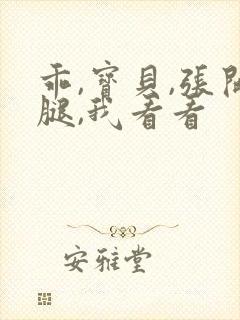 乖,寶貝,張開
腿,我看看
安雅堂